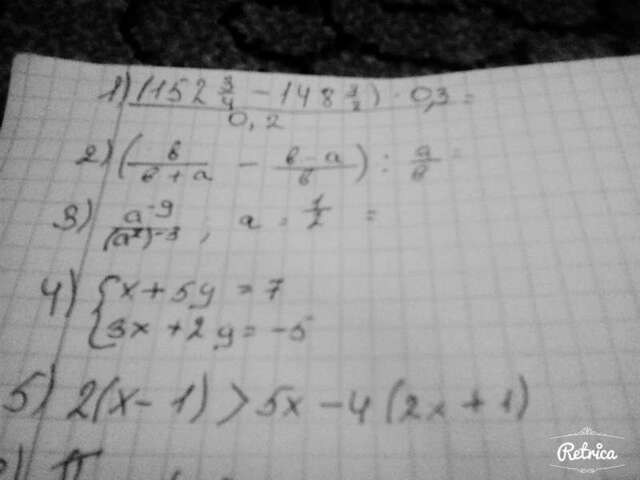 1) (152 3/4 - 148 1/2) · 0,3 =
0,2
2) (в/в+а - в-а/в) : а/в =
3) a⁻⁹/(a²)⁻³ ; a = 1/2 =
4) { x + 5y = 7
3x + 2y = -5
5) 2(x - 1) > 5x - 4 (2x + 1)
Retrica